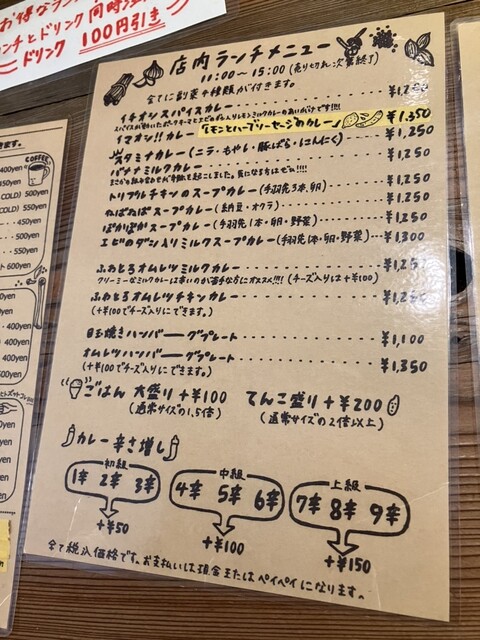 お得なラン
ンチとドリンク同時注
ドリンク 100円引き
店内ランチメニュー
11:00〜15:00(売り切れ次第終了)
全てに副菜4種類が付きます。
イチオシスパイスカレー ¥1,200
イマオシ!!カレー 「レモンとハーブソーセージのカレー」 ¥1,350
スタミナカレー(ニラ・もやし・豚ばら・にんにく) ¥1,250
バナナミルクカレー ¥1,250
トリプルチキンのスープカレー(手羽先3本、卵) ¥1,250
ねばねばスープカレー(納豆・オクラ) ¥1,250
ぽかぽかスープカレー(手羽先1本・卵・野菜) ¥1,250
エビのダシ入りミルクスープカレー(手羽先1本・卵・野菜) ¥1,300
ふわとろオムレツミルクカレー ¥1,250
クリーミーなミルクカレーは辛いのが苦手な方にオススメ!!!!(チーズ入りは+¥100)
ふわとろオムレツチキンカレー
(+¥100でチーズ入りにできます。)
目玉焼きハンバーグプレート ¥1,100
オムレツハンバーグプレート ¥1,350
(+¥100でチーズ入りにできます。)
ごはん 大盛り+¥100 てんこ盛り+¥200
(通常サイズの1.5倍) (通常サイズの2倍以上)
カレー辛さ増し
初級 中級 上級
1辛 2辛 3辛 4辛 5辛 6辛 7辛 8辛 9辛
+¥50 +¥100 +¥150
全て税込価格です。お支払いは現金またはペイペイになります。
COFFEE
COLD) 500yen
450yen
500yen
550yen
ット 600yen
400yen
400yen
400yen